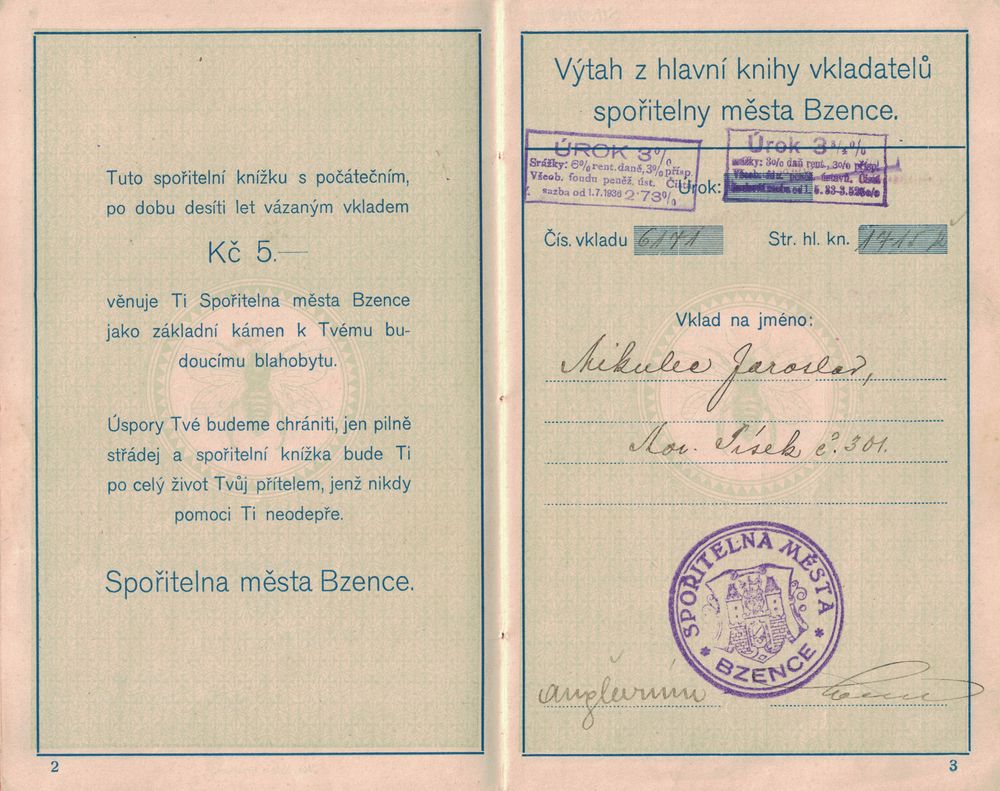 Tuto spořitelní knížku s počátečním,
po dobu desíti let vázaným vkladem
Kč 5.—
věnuje Ti Spořitelna města Bzence
jako základní kámen k Tvému bu-
doucímu blahobytu.
Úspory Tvé budeme chrániti, jen pilně
střádej a spořitelní knížka bude Ti
po celý život Tvůj přítelem, jenž nikdy
pomoci Ti neodepře.
Spořitelna města Bzence.
2
Výtah z hlavní knihy vkladatelů
spořitelny města Bzence.
ÚROK 3%
Srážky: 6% rent. daně, 3% přísp.
Všeob. fondu peněž. úst.
sazba od 1.7.1936 2·73%
Úrok 3 3/4%
srážky: 3% daň rent., 3% přísp.
Všeob. peněž. ústavů.
Úrok:
Čís. vkladu 6171
Str. hl. kn.
Vklad na jméno:
Mikulec Jaroslav,
Nov. Písek č. 301.
SPOŘITELNA MĚSTA
* BZENCE *
3